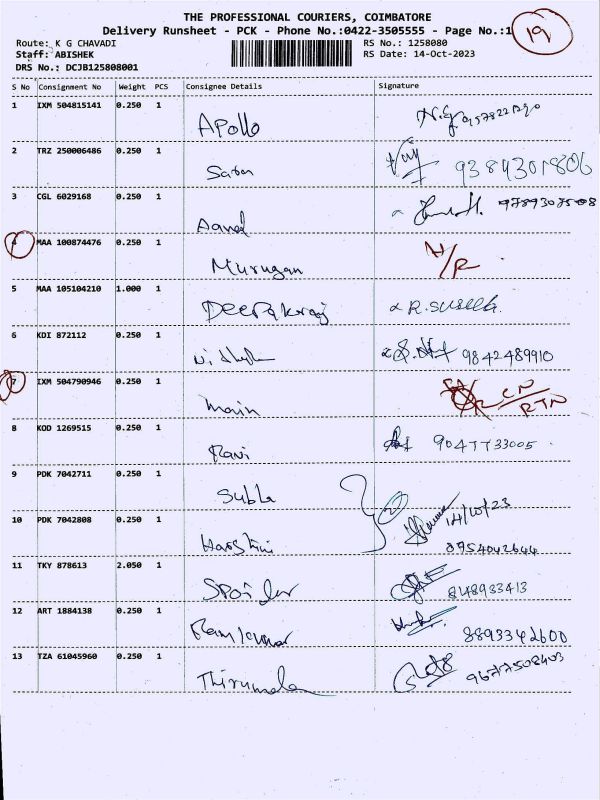 THE PROFESSIONAL COURIERS, COIMBATORE
Delivery Runsheet - PCK - Phone No.:0422-3505555 - Page No.:1
19
Route: K G CHAVADI RS No.: 1258080
Staff: ABISHEK RS Date: 14-Oct-2023
DRS No.: DCJB125808001
S No Consignment No Weight PCS Consignee Details Signature
1 IXM 504815141 0.250 1 Apollo
2 TRZ 250006486 0.250 1 9384301806
3 CGL 6029168 0.250 1 9789307508
4 MAA 100874476 0.250 1 Murugan N/R
5 MAA 105104210 1.000 1 Deepakraj R.SUSEELA
6 KDI 872112 0.250 1 9842489910
7 IXM 504790946 0.250 1 main CN RTN
8 KOD 1269515 0.250 1 Ravi 9047733005
9 PDK 7042711 0.250 1 Subha 2
10 PDK 7042808 0.250 1 Harshini 14/10/23
8754042644
11 TKY 878613 2.050 1 848933413
12 ART 1884138 0.250 1 Ramkumar 8893342600
13 TZA 61045960 0.250 1 Thirumala 9677508403